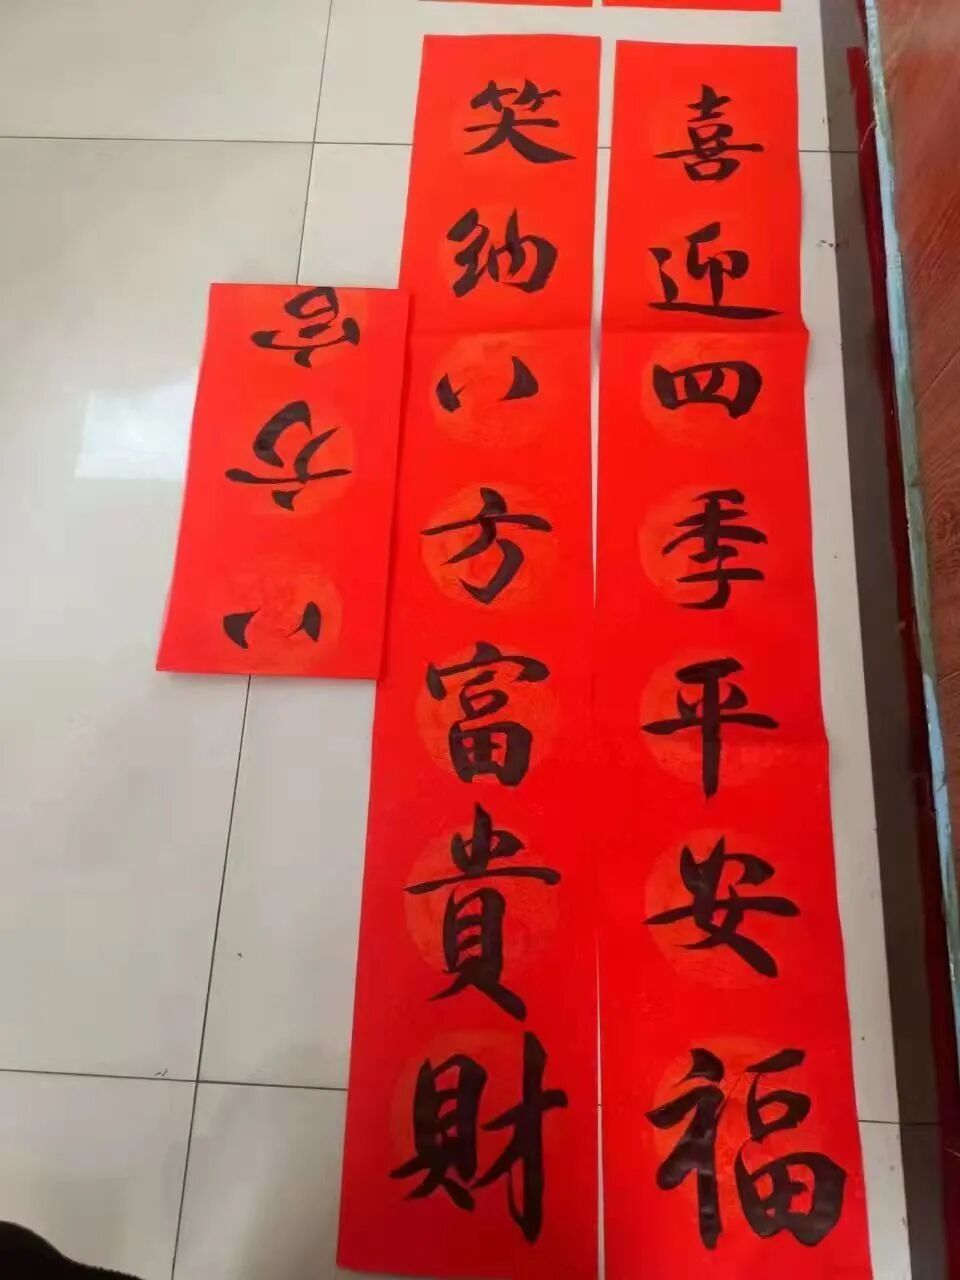 喜迎四季平安福
笑纳八方富貴財
八方